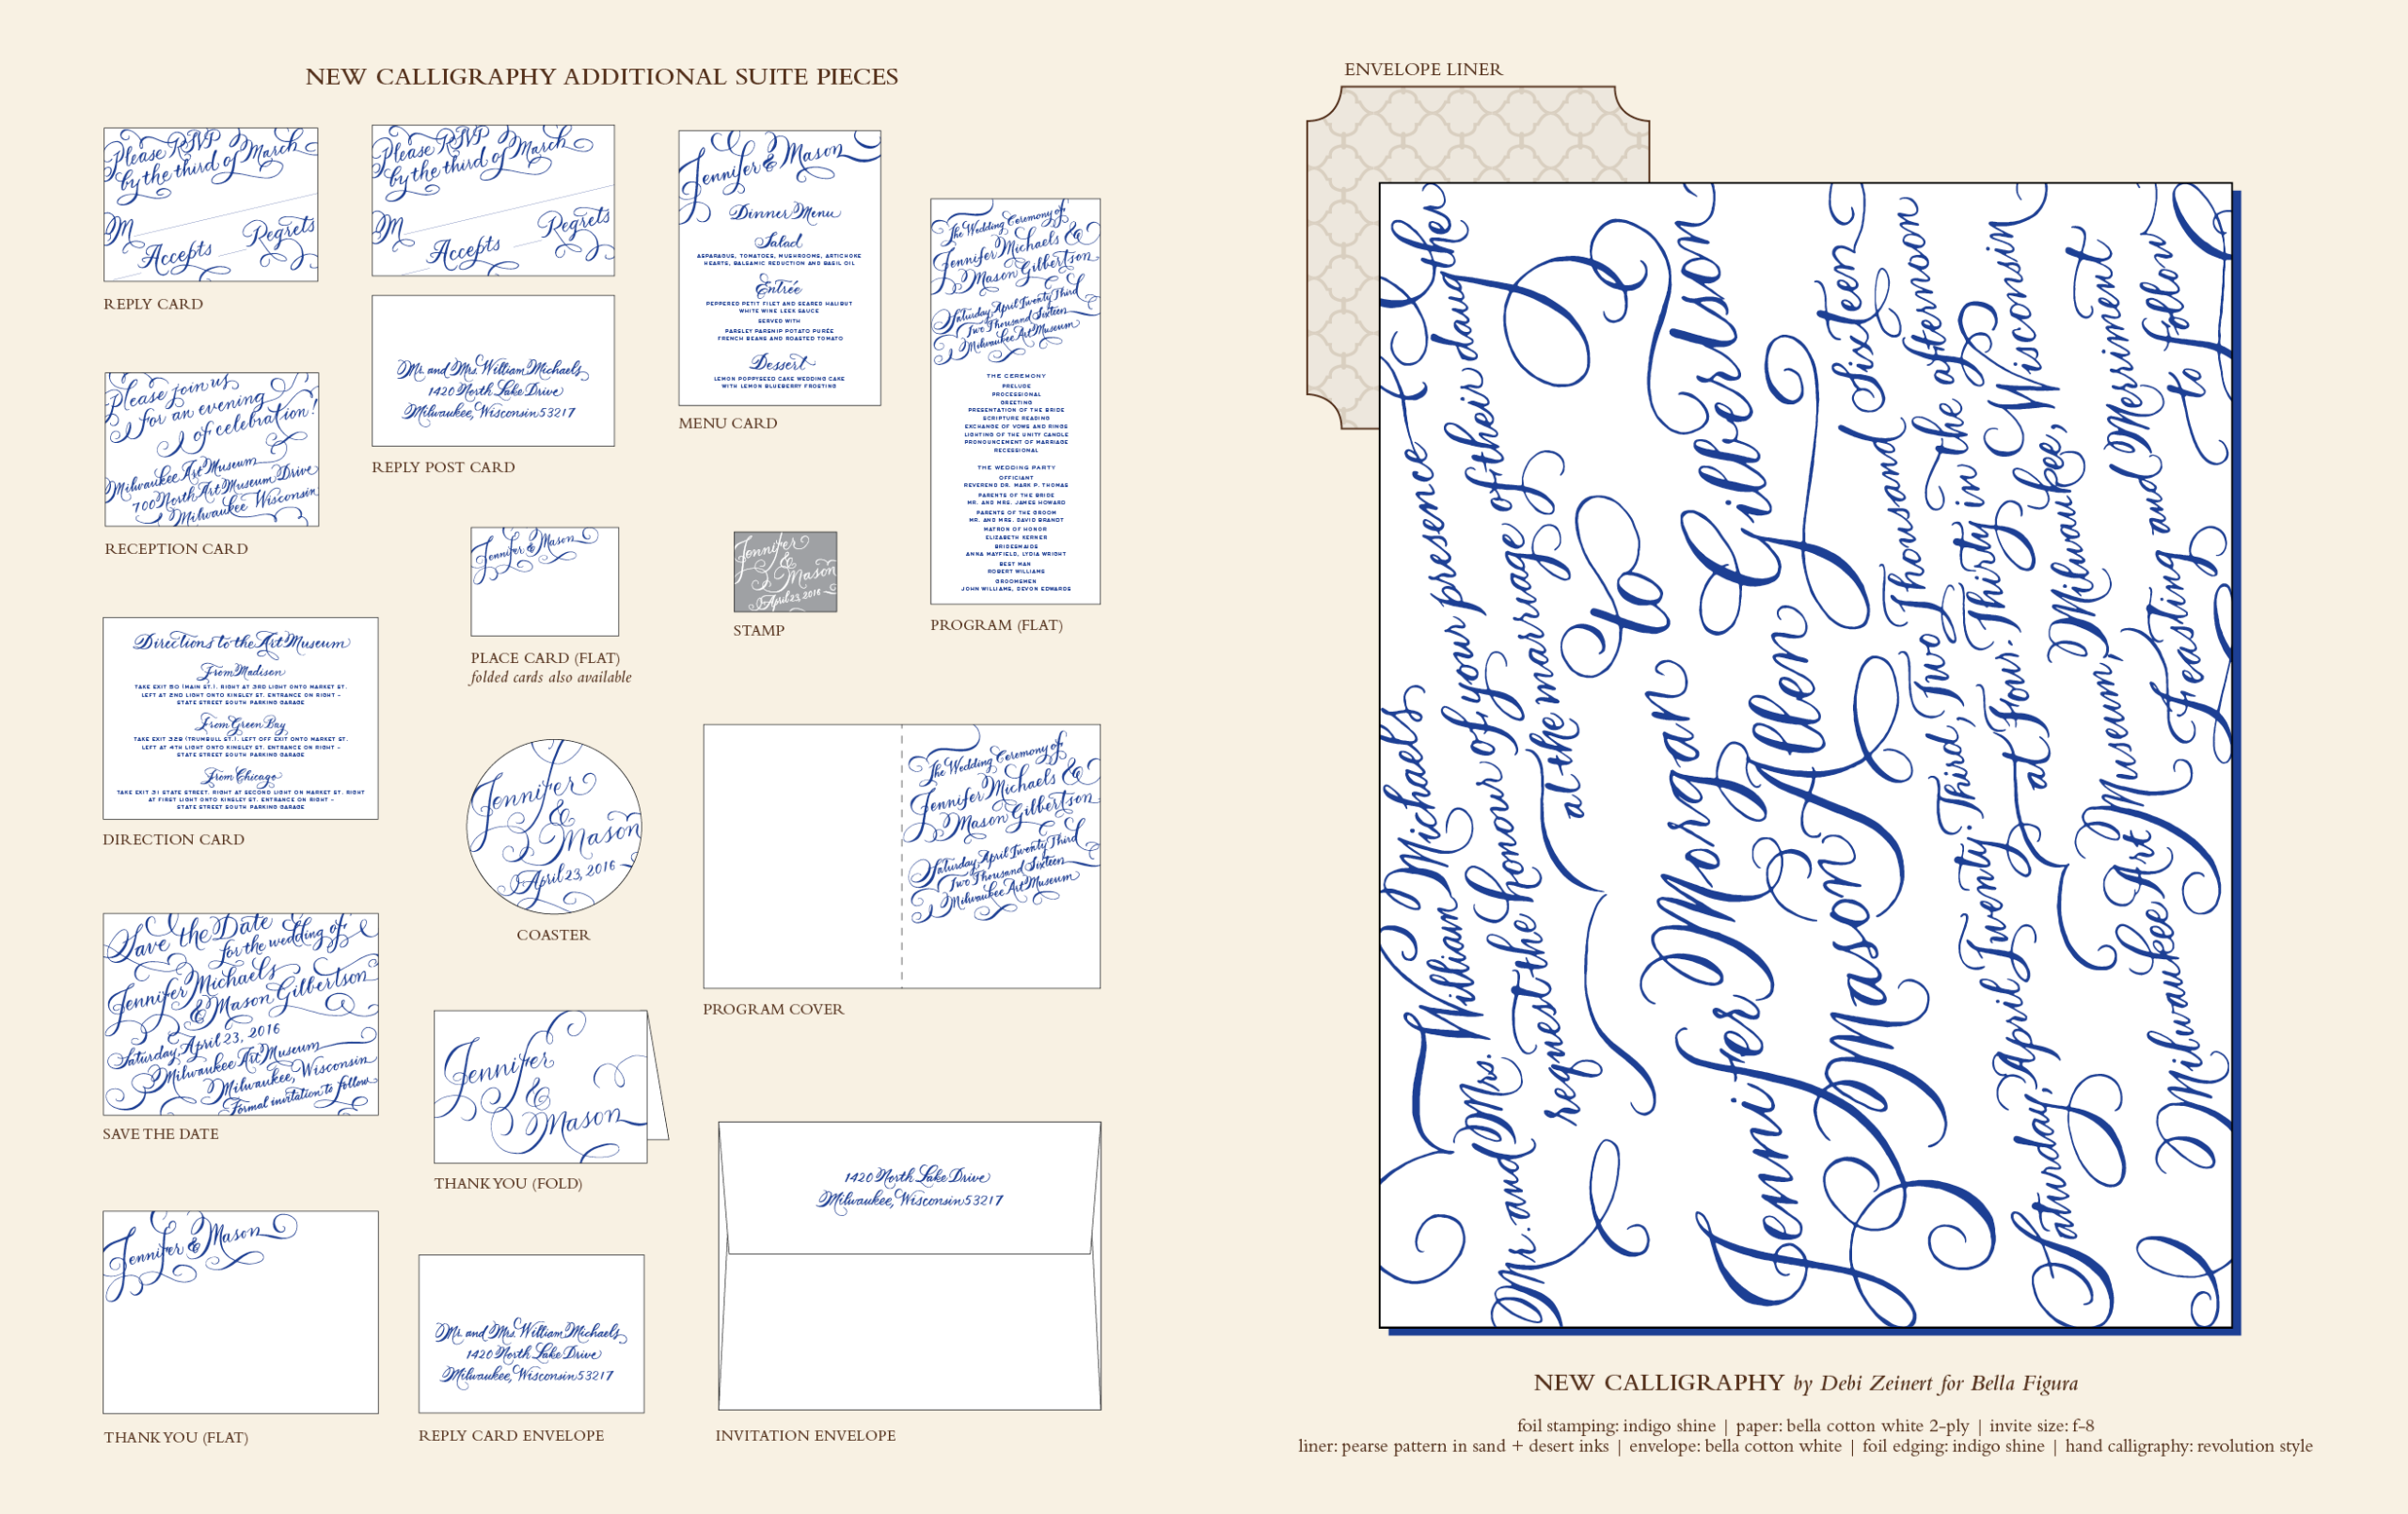 NEW CALLIGRAPHY ADDITIONAL SUITE PIECES
Please RSVP
by the third of March
M
Accepts
Regrets
REPLY CARD
Please RSVP
by the third of March
M
Accepts
Regrets
Mr. and Mrs. William Michaels
1420 North Lake Drive
Milwaukee, Wisconsin 53217
REPLY POST CARD
Jennifer & Mason
Dinner Menu
Salad
ASPARAGUS, TOMATOES, MUSHROOMS, ARTICHOKE
HEARTS, BALSAMIC REDUCTION AND BASIL OIL
Entrée
PEPPERED PETIT FILET AND SEARED HALIBUT
WHITE WINE LEEK SAUCE
SERVED WITH
PARSLEY PARSNIP POTATO PURÉE
FRENCH BEANS AND ROASTED TOMATO
Dessert
LEMON POPPYSEED CAKE WEDDING CAKE
WITH LEMON BLUEBERRY FROSTING
MENU CARD
The Wedding Ceremony of
Jennifer Michaels &
Mason Gilbertson
Saturday, April Twenty Third
Two Thousand Sixteen
Milwaukee Art Museum
THE CEREMONY
PRELUDE
PROCESSIONAL
GREETING
PRESENTATION OF THE BRIDE
SCRIPTURE READING
EXCHANGE OF VOWS AND RINGS
LIGHTING OF THE UNITY CANDLE
PRONOUNCEMENT OF MARRIAGE
RECESSIONAL
THE WEDDING PARTY
OFFICIANT
REVEREND DR. MARK P. THOMAS
PARENTS OF THE BRIDE
MR. AND MRS. JAMES HOWARD
PARENTS OF THE GROOM
MR. AND MRS. DAVID BRANDT
MATRON OF HONOR
ELIZABETH KERNER
BRIDESMAIDS
ANNA MAYFIELD, LYDIA WRIGHT
BEST MAN
ROBERT WILLIAMS
GROOMSMEN
JOHN WILLIAMS, DEVON EDWARDS
PROGRAM (FLAT)
Please join us
for an evening
of celebration!
Milwaukee Art Museum
700 North Art Museum Drive
Milwaukee Wisconsin
RECEPTION CARD
Jennifer & Mason
PLACE CARD (FLAT)
folded cards also available
Jennifer
&
Mason
April 23, 2016
STAMP
Directions to the Art Museum
From Madison
TAKE EXIT 50 (MAIN ST.). RIGHT AT 3RD LIGHT ONTO MARKET ST.
LEFT AT 2ND LIGHT ONTO KINGLEY ST. ENTRANCE ON RIGHT –
STATE STREET SOUTH PARKING GARAGE
From Green Bay
TAKE EXIT 32B (TRUMBULL ST.). LEFT OFF EXIT ONTO MARKET ST.
LEFT AT 4TH LIGHT ONTO KINGLEY ST. ENTRANCE ON RIGHT –
STATE STREET SOUTH PARKING GARAGE
From Chicago
TAKE EXIT 31 STATE STREET. RIGHT AT SECOND LIGHT ON MARKET ST. RIGHT
AT FIRST LIGHT ONTO KINGLEY ST. ENTRANCE ON RIGHT –
STATE STREET SOUTH PARKING GARAGE
DIRECTION CARD
Jennifer
&
Mason
April 23, 2016
COASTER
The Wedding Ceremony of
Jennifer Michaels &
Mason Gilbertson
Saturday, April Twenty Third
Two Thousand Sixteen
Milwaukee Art Museum
PROGRAM COVER
Save the Date
for the wedding of
Jennifer Michaels
& Mason Gilbertson
Saturday, April 23, 2016
Milwaukee Art Museum
Milwaukee, Wisconsin
Formal invitation to follow
SAVE THE DATE
Jennifer
&
Mason
THANK YOU (FOLD)
1420 North Lake Drive
Milwaukee, Wisconsin 53217
INVITATION ENVELOPE
Jennifer & Mason
THANK YOU (FLAT)
Mr. and Mrs. William Michaels
1420 North Lake Drive
Milwaukee, Wisconsin 53217
REPLY CARD ENVELOPE
ENVELOPE LINER
Mr. and Mrs. William Michaels
request the honour of your presence
at the marriage of their daughter
Jennifer Morgan
to
Mason Allen Gilbertson
Saturday, April Twenty-Third, Two Thousand Sixteen
at Four-Thirty in the afternoon
Milwaukee Art Museum, Milwaukee, Wisconsin
Feasting and Merriment
to follow
NEW CALLIGRAPHY by Debi Zeinert for Bella Figura
foil stamping: indigo shine | paper: bella cotton white 2-ply | invite size: f-8
liner: pearse pattern in sand + desert inks | envelope: bella cotton white | foil edging: indigo shine | hand calligraphy: revolution style